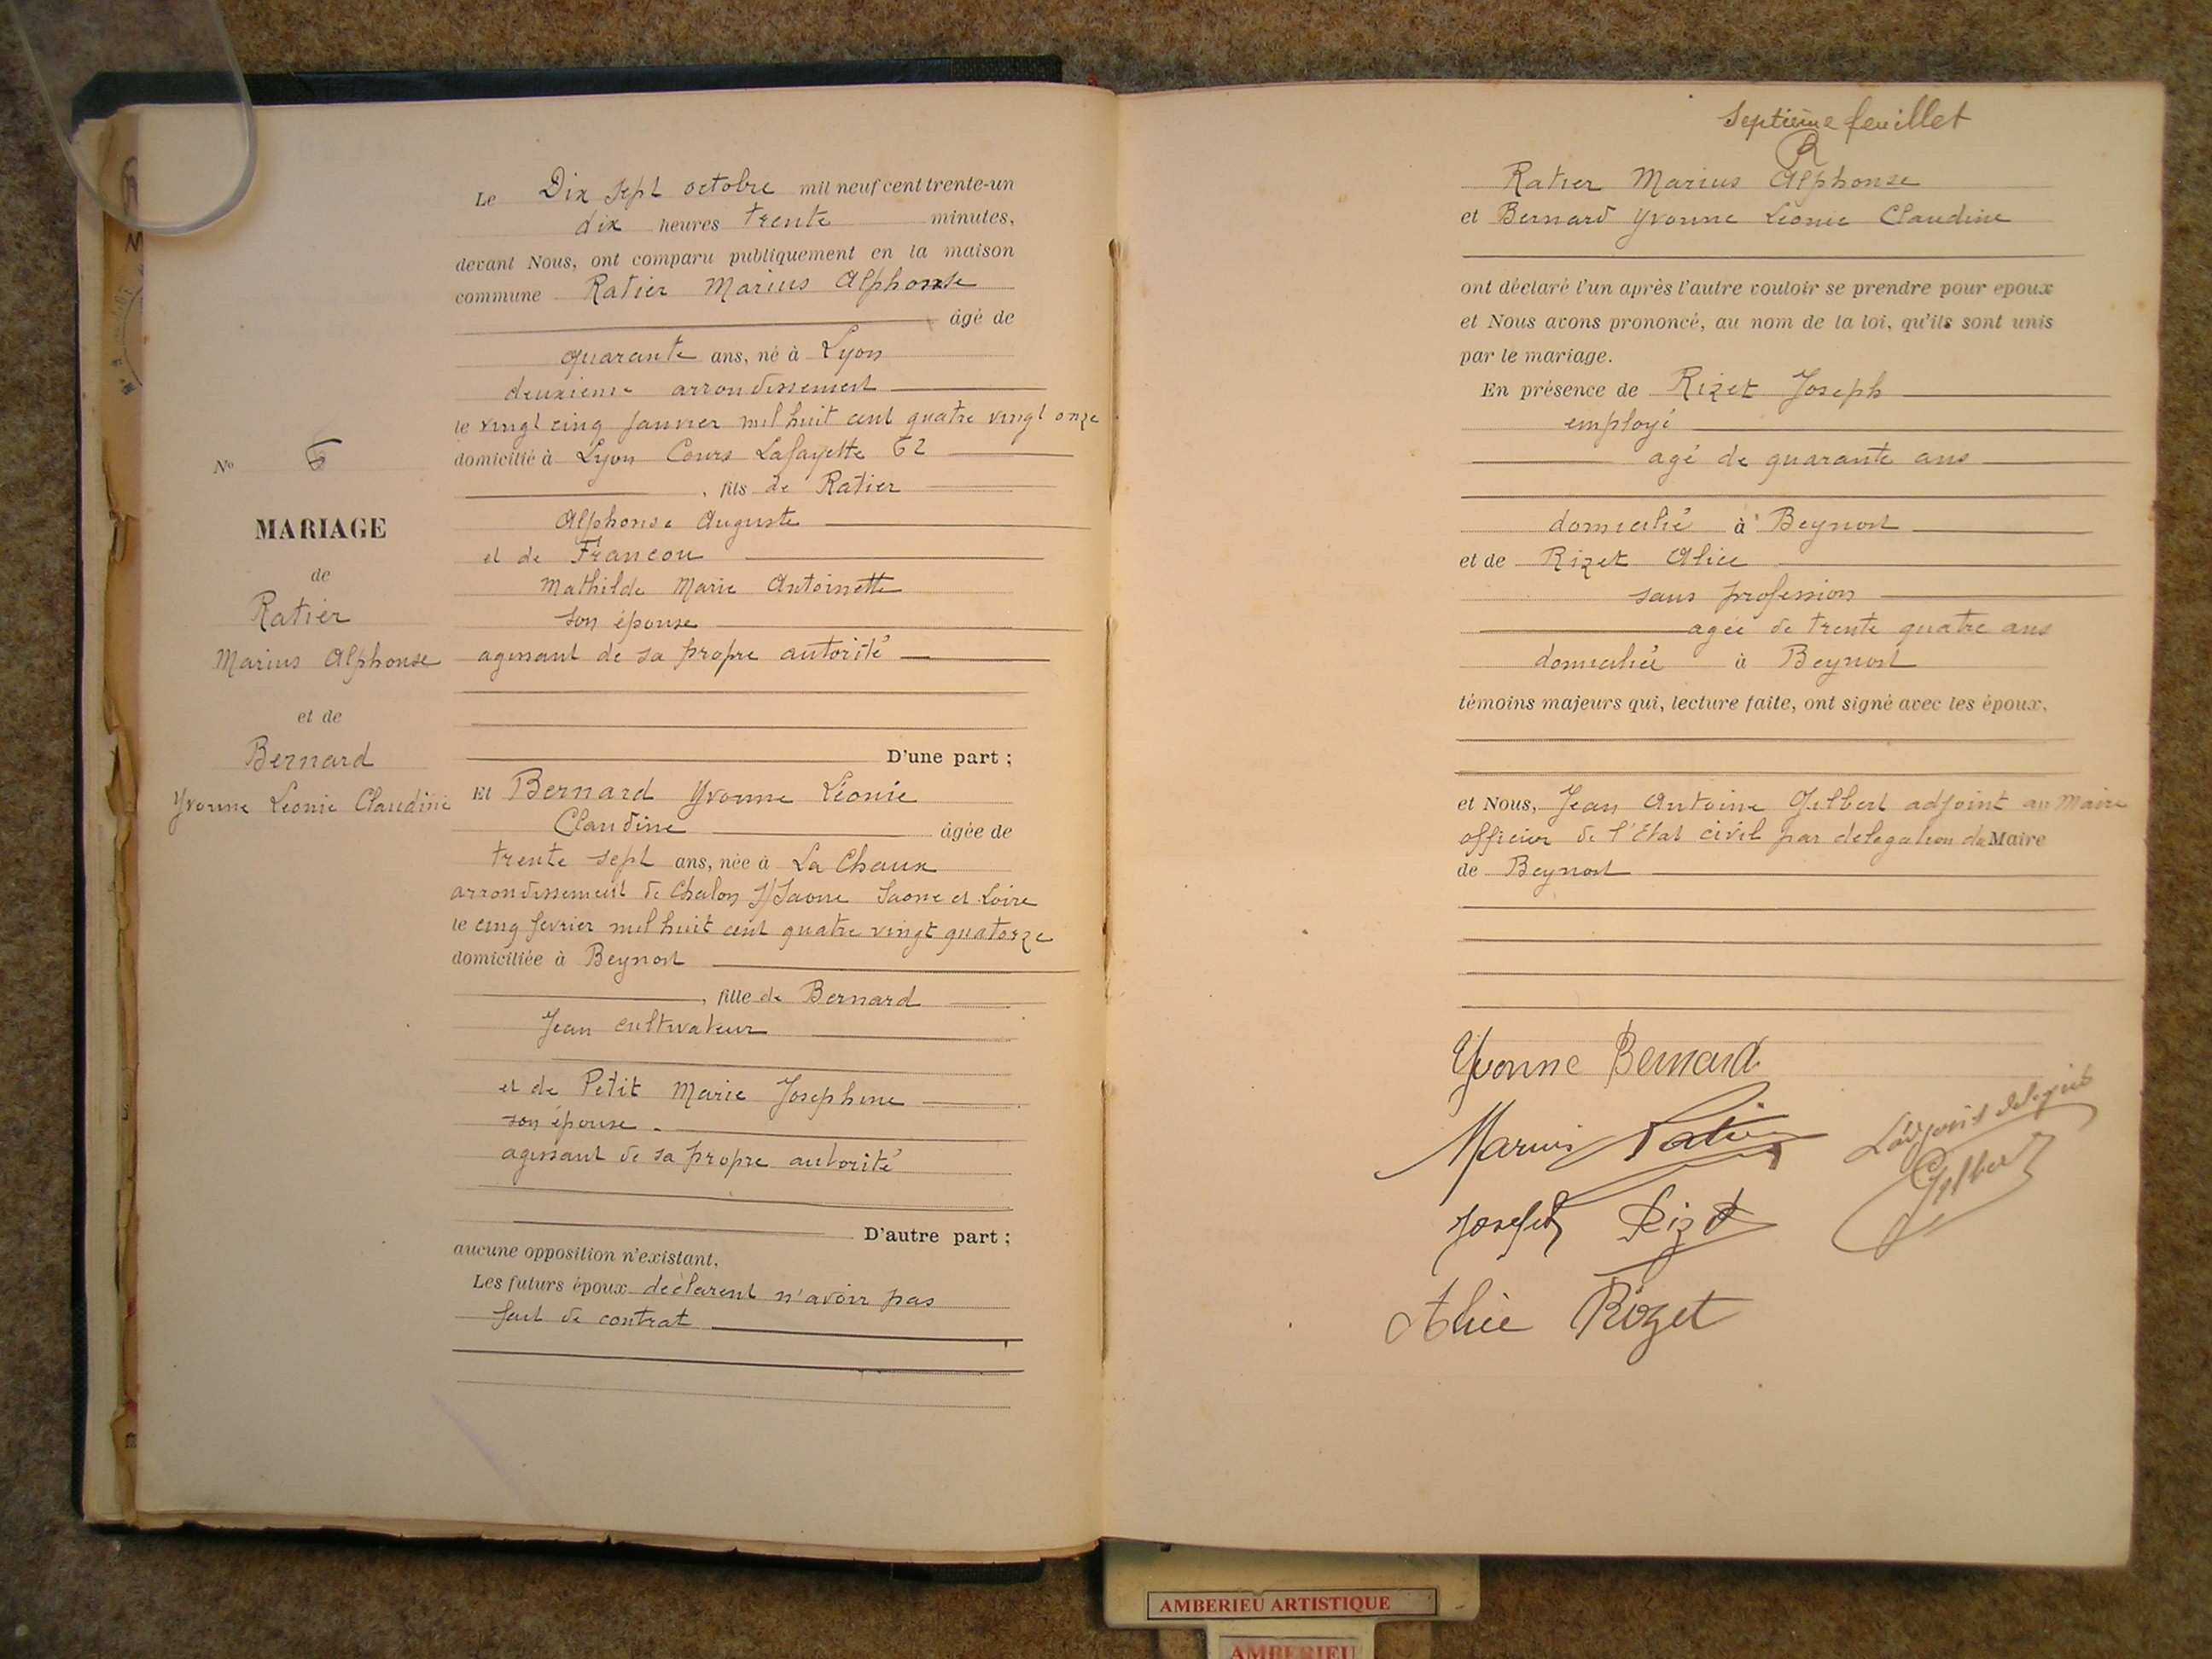 Le Dix sept octobre mil neuf cent trente-un
dix heures trente minutes,
devant Nous, ont comparu publiquement en la maison
commune Ratier Marius Alphonse
âgé de
quarante ans, né à Lyon
deuxieme arrondissement
le vingt cinq Janvier mil huit cent quatre vingt onze
domicilié à Lyon Cours Lafayette 62
, fils de Ratier
Alphonse Auguste
et de Francou
Mathilde Marie Antoinette
son épouse
agissant de sa propre autorité
D'une part ;
Et Bernard Yvonne Léonie
Claudine âgée de
trente sept ans, née à La Chaux
arrondissement de Chalon s/Saone Saone et Loire
le cinq fevrier mil huit cent quatre vingt quatorze
domiciliée à Beynost
, fille de Bernard
Jean cultivateur
et de Petit Marie Josephine
son épouse
agissant de sa propre autorité
D'autre part ;
aucune opposition n'existant,
Les futurs époux déclarent n'avoir pas
fait de contrat
No
MARIAGE
de
Ratier
Marius Alphonse
et de
Bernard
Yvonne Leonie Claudine
Septième feuillet
R
Ratier Marius Alphonse
et Bernard Yvonne Léonie Claudine
ont déclaré l'un après l'autre vouloir se prendre pour epoux
et Nous avons prononcé, au nom de la loi, qu'ils sont unis
par le mariage.
En présence de Rizet Joseph
employé
agé de quarante ans
domicilié à Beynost
et de Rizet Alice
sans profession
agée de trente quatre ans
domiciliée à Beynost
témoins majeurs qui, lecture faite, ont signé avec les époux,
et Nous, Jean Antoine Gilbert adjoint au Maire
officier de l'Etat civil par delegation du Maire
de Beynost
Yvonne Bernard
Marius Ratier
L'adjoint delegué
Gilbert
Joseph Rizet
Alice Rizet
AMBERIEU ARTISTIQUE
AMBERIEU